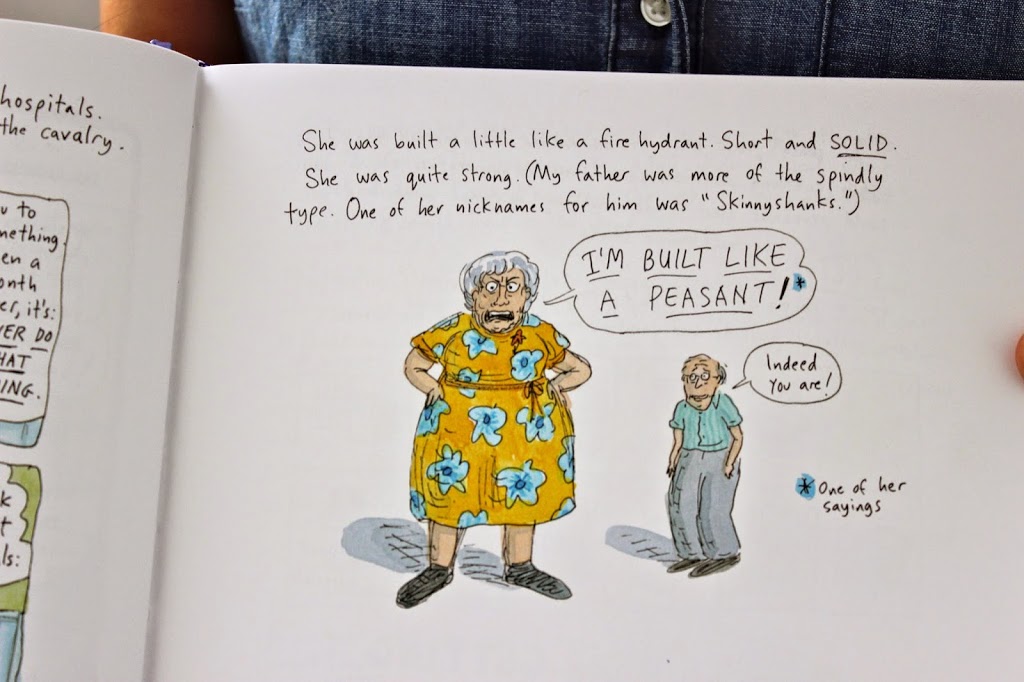 hospitals.
the cavalry.
to
en a
onth
it's:
DO
She was built a little like a fire hydrant. Short and SOLID.
She was quite strong. (My father was more of the spindly
type. One of her nicknames for him was "Skinnyshanks.")
I'M BUILT LIKE
A PEASANT!*
Indeed
You are!
* One of her
sayings